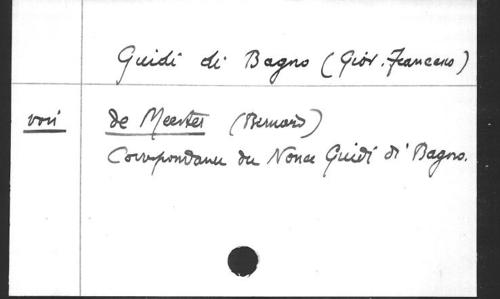 Guidi di Bagno (Giov. Francesco)
voir de Meester (Bernard)
Correspondance du Nonce Guidi di Bagno.